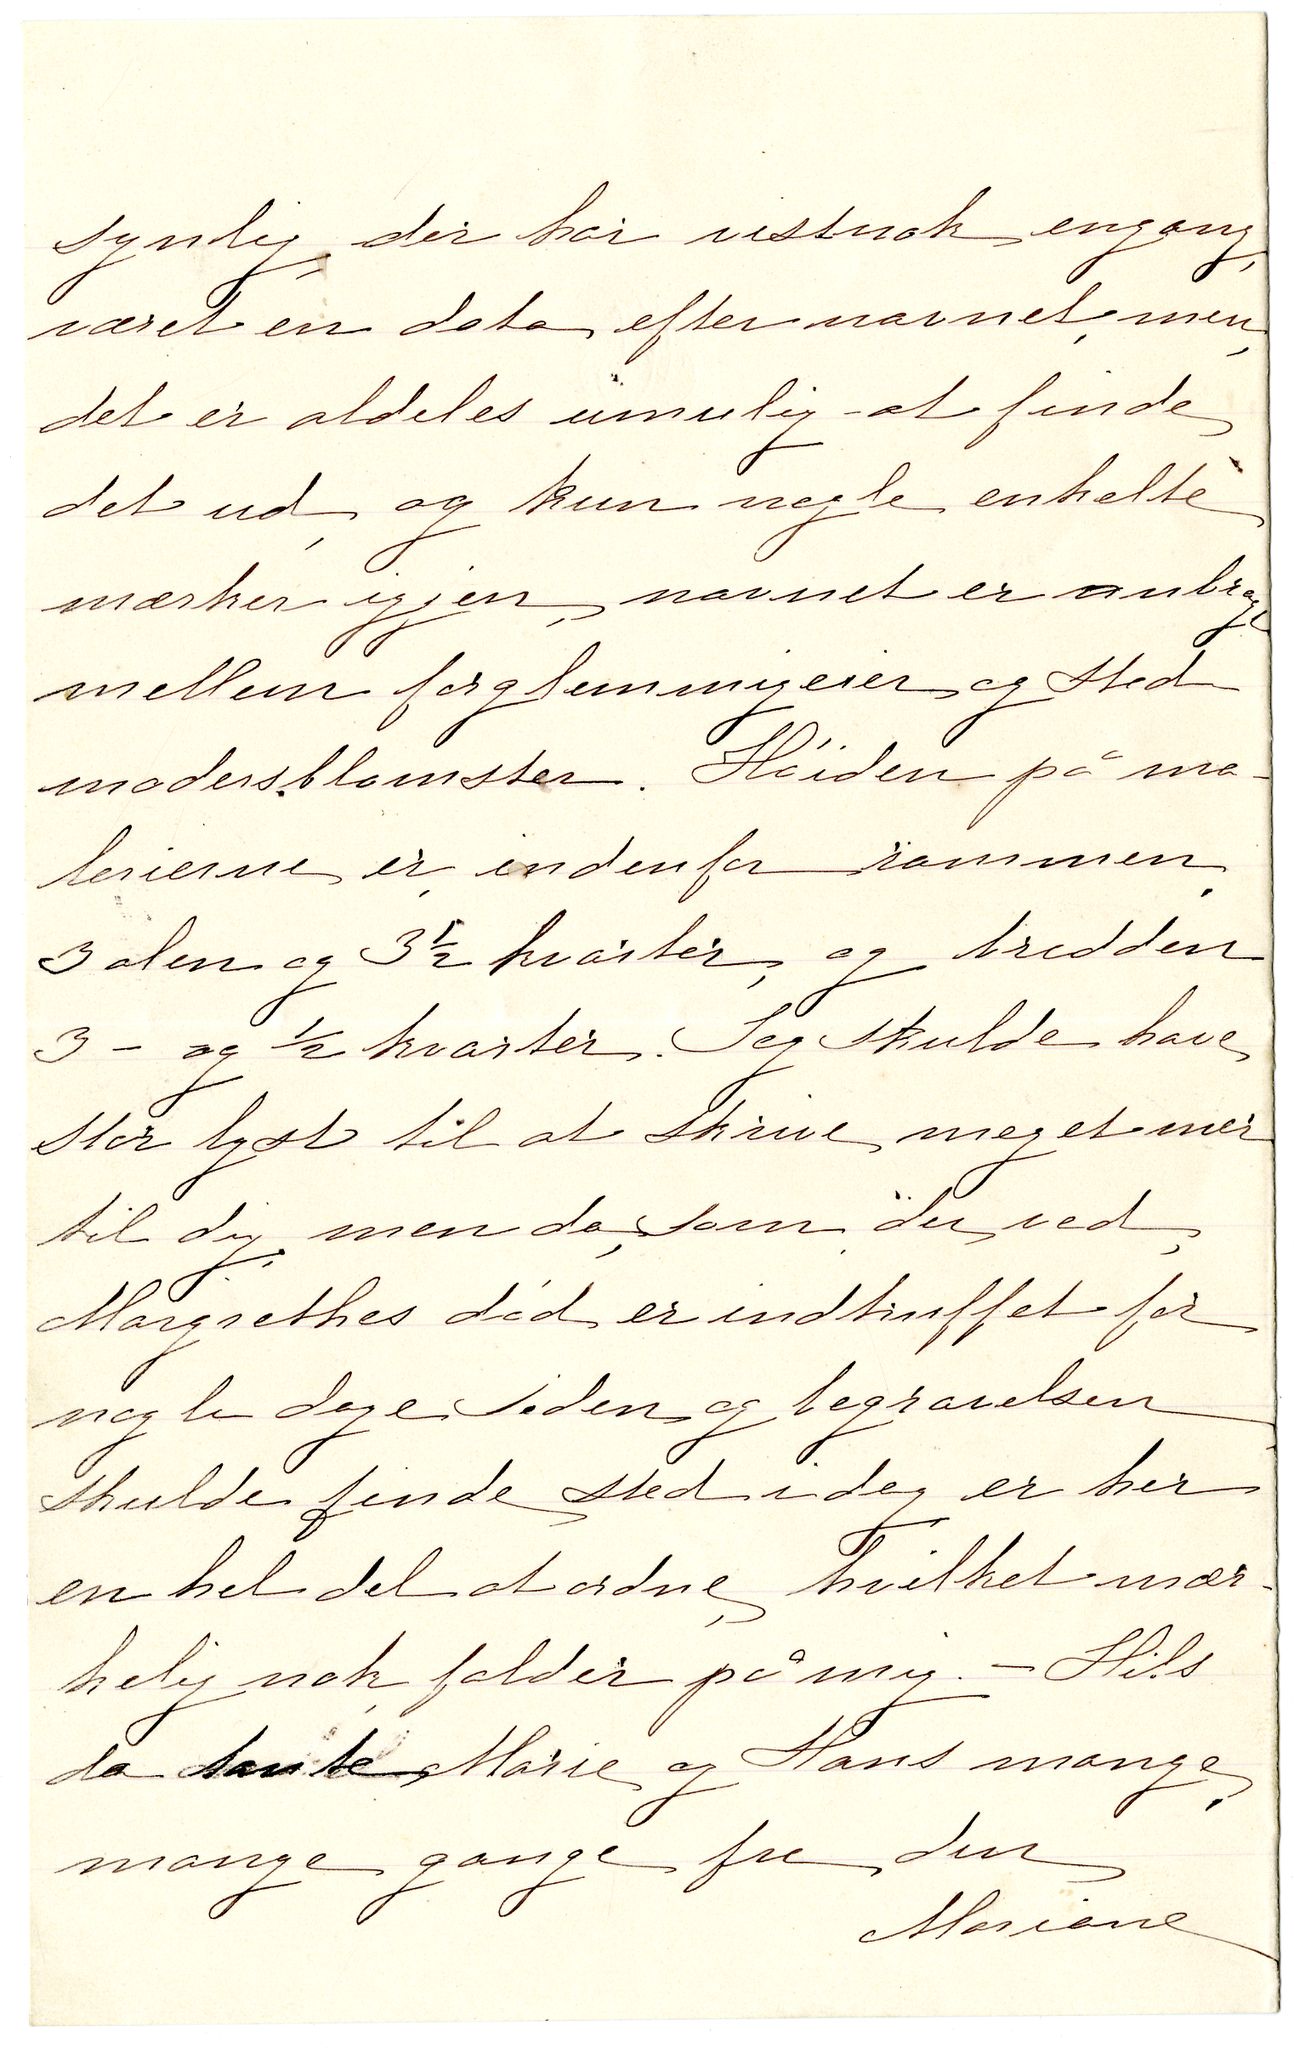 synlig, der har vistnok engang,
været en data efter navnet, men,
det er aldeles umulig at finde
det ud, og kun nogle enkelte
mærker igjen, navnet er anbragt
mellem forglemmigeier og sted
modersblomster. Høiden på ma-
lerierne er indenfor rammen,
3 alen og 3 1/2 kvarter, og bredden
3 - og 1/2 kvarter. Jeg skulde have
stor lyst til at skrive meget mer
til dig, men da, som du ved,
Margrethes død er indtruffet for
nogle dage siden og begravelsen
skulde finde sted idag er her
en hel del at ordne, hvilket mær-
kelig nok falder på mig. - Hils
da tante Marie og Hans mange,
mange gange fra din
Mariane